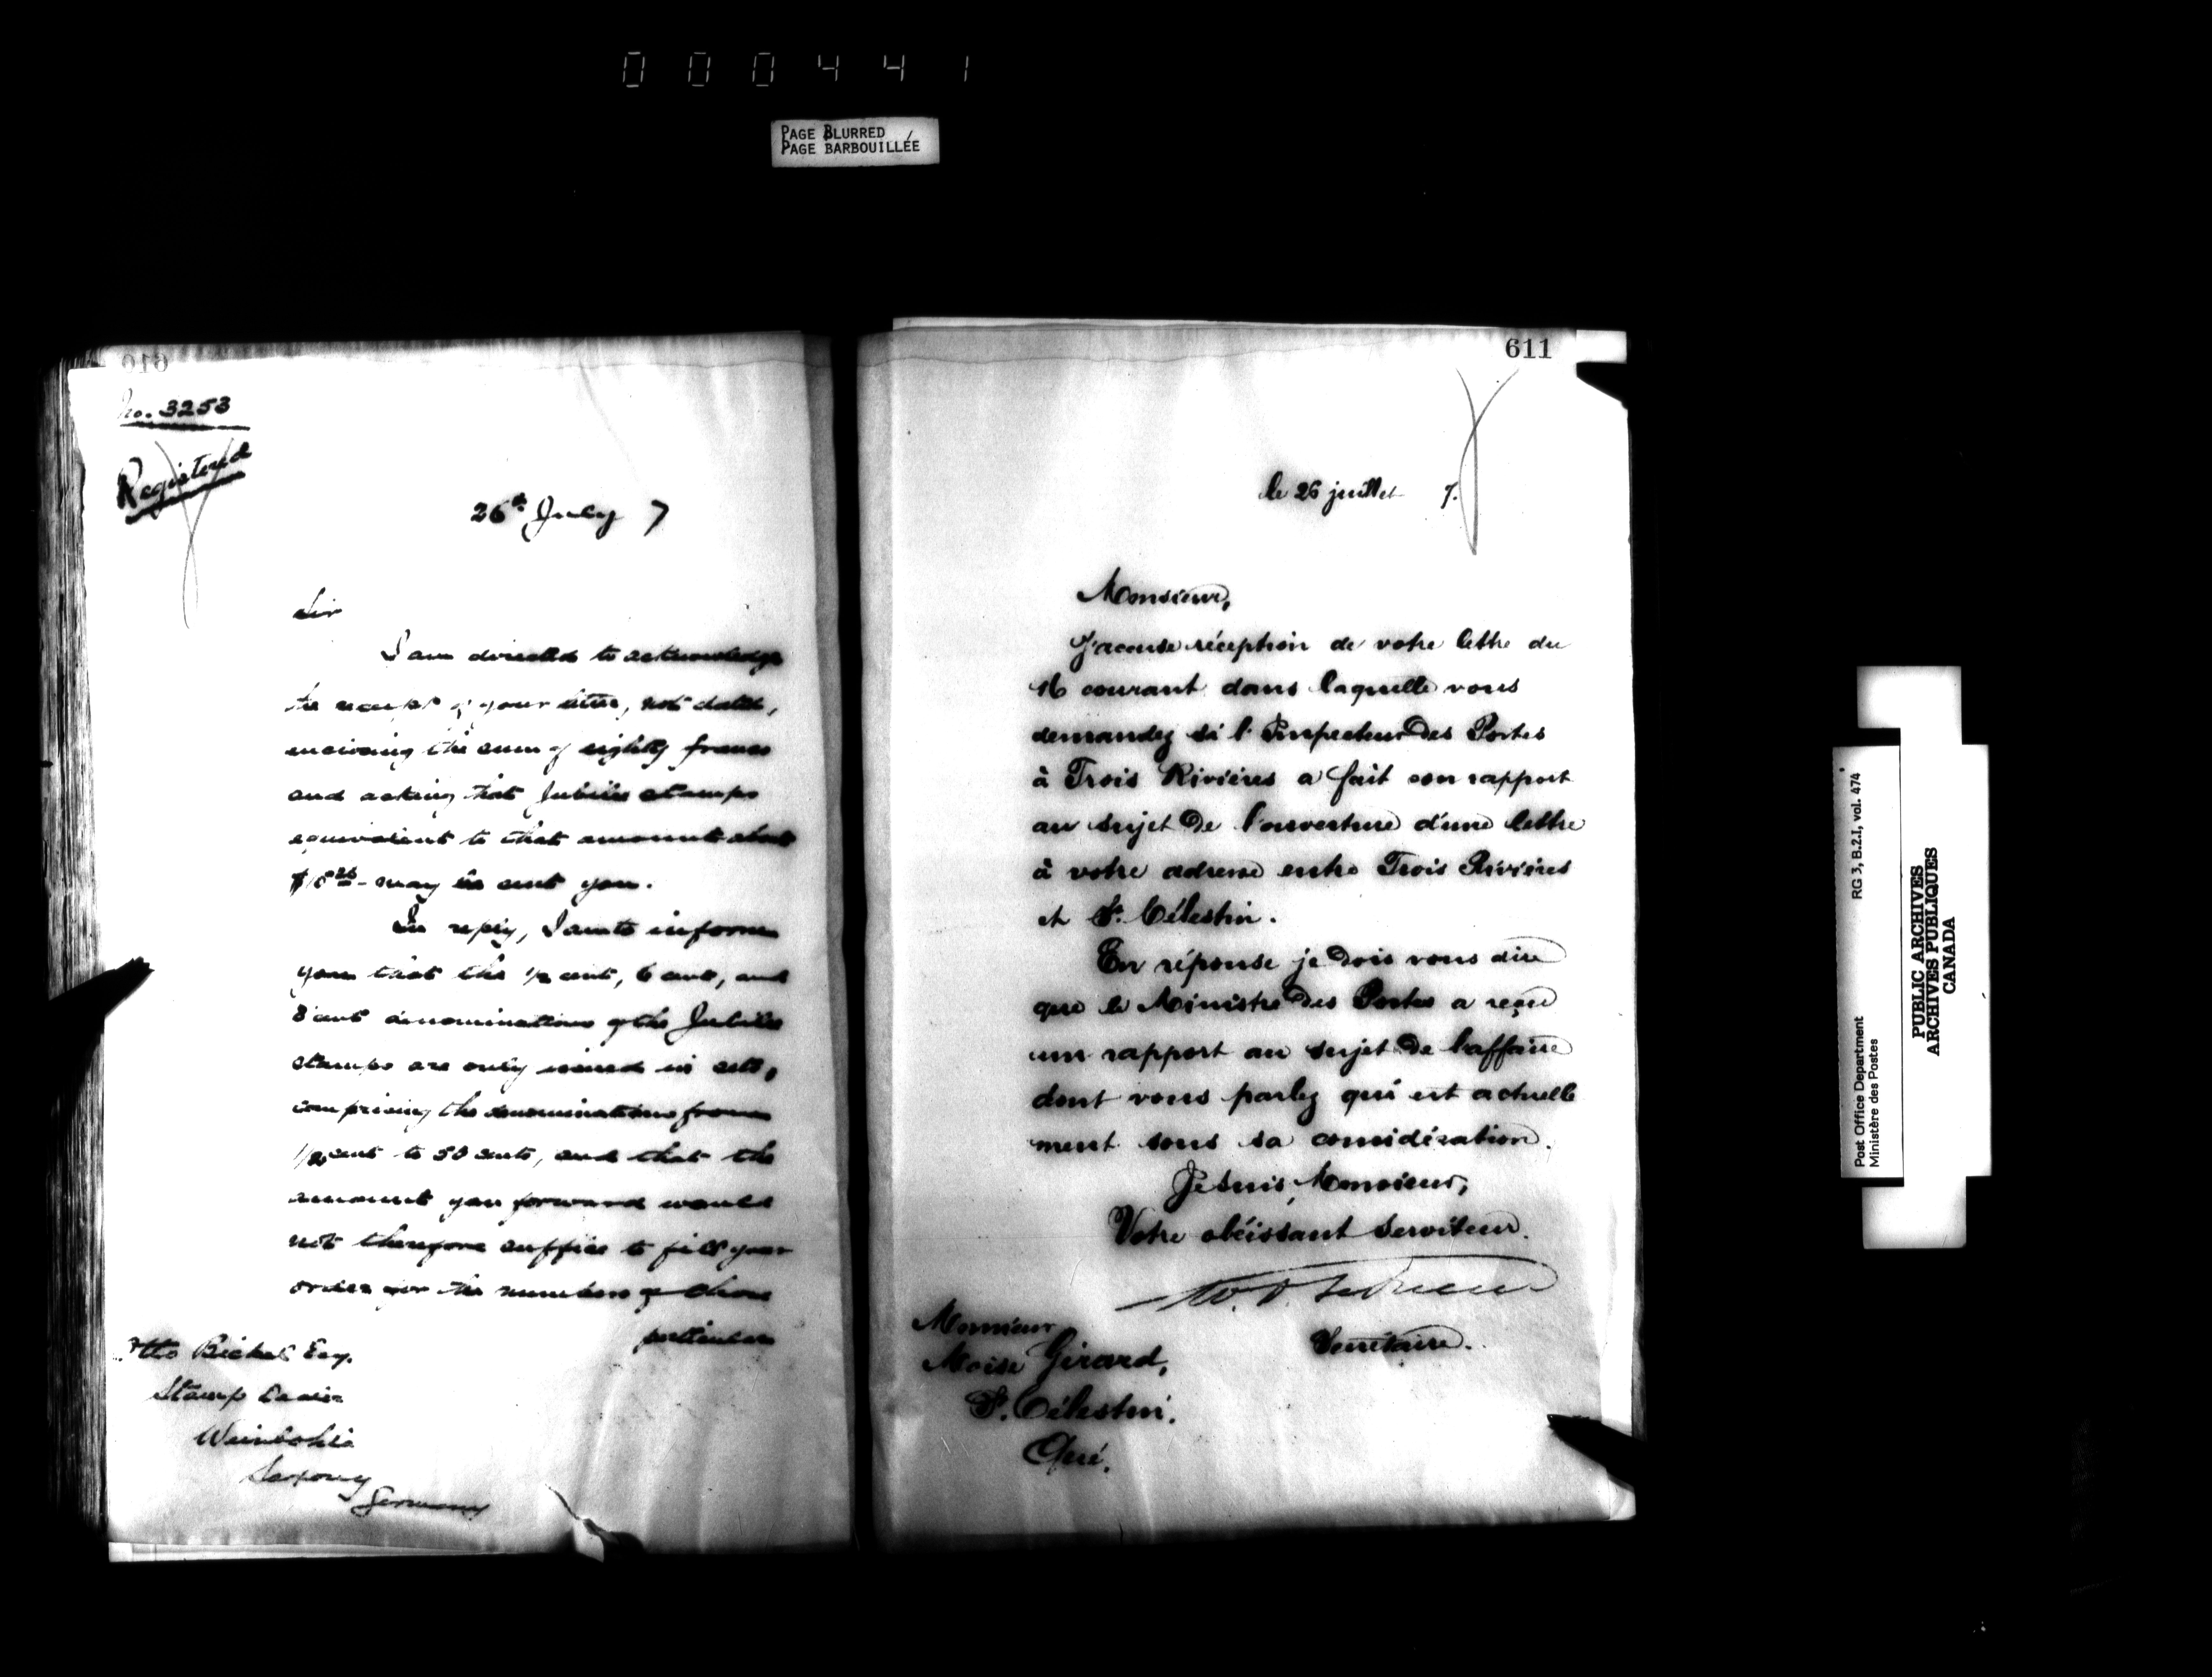 000441
PAGE BLURRED
PAGE BARBOUILLÉE
610
No. 3253
Registered
26th July 7
Sir
I am directed to acknowledge
the receipt of your letter, not dated,
enclosing the sum of eighty francs
and asking that Jubilee stamps
equivalent to that amount about
may be sent you.
In reply, I am to inform
you that the 1/2 cent, 6 cent, and
8 cent denominations of the Jubilee
stamps are only issued in sets,
comprising the denominations from
1/2 cent to 50 cents, and that the
amount you forward would
not therefore suffice to fill your
order for the numbers of those
particular
Otto Bickel Esq.
Stamp Dealer
Saxony
Germany
611
le 26 juillet 7.
Monsieur,
J'accuse réception de votre lettre du
16 courant dans laquelle vous
demandez si l'Inspecteur des Postes
à Trois Rivières a fait son rapport
au sujet de l'ouverture d'une lettre
à votre adresse entre Trois Rivières
et St. Célestin.
En réponse je dois vous dire
que le Ministre des Postes a reçu
un rapport au sujet de l'affaire
dont vous parlez qui est actuelle
ment sous sa considération.
Je suis, Monsieur,
Votre obéissant serviteur.
Secrétaire.
Monsieur
Moise Girard,
St. Célestin.
Qué.
Post Office Department RG 3, B.2.I, vol. 474
Ministère des Postes
PUBLIC ARCHIVES
ARCHIVES PUBLIQUES
CANADA